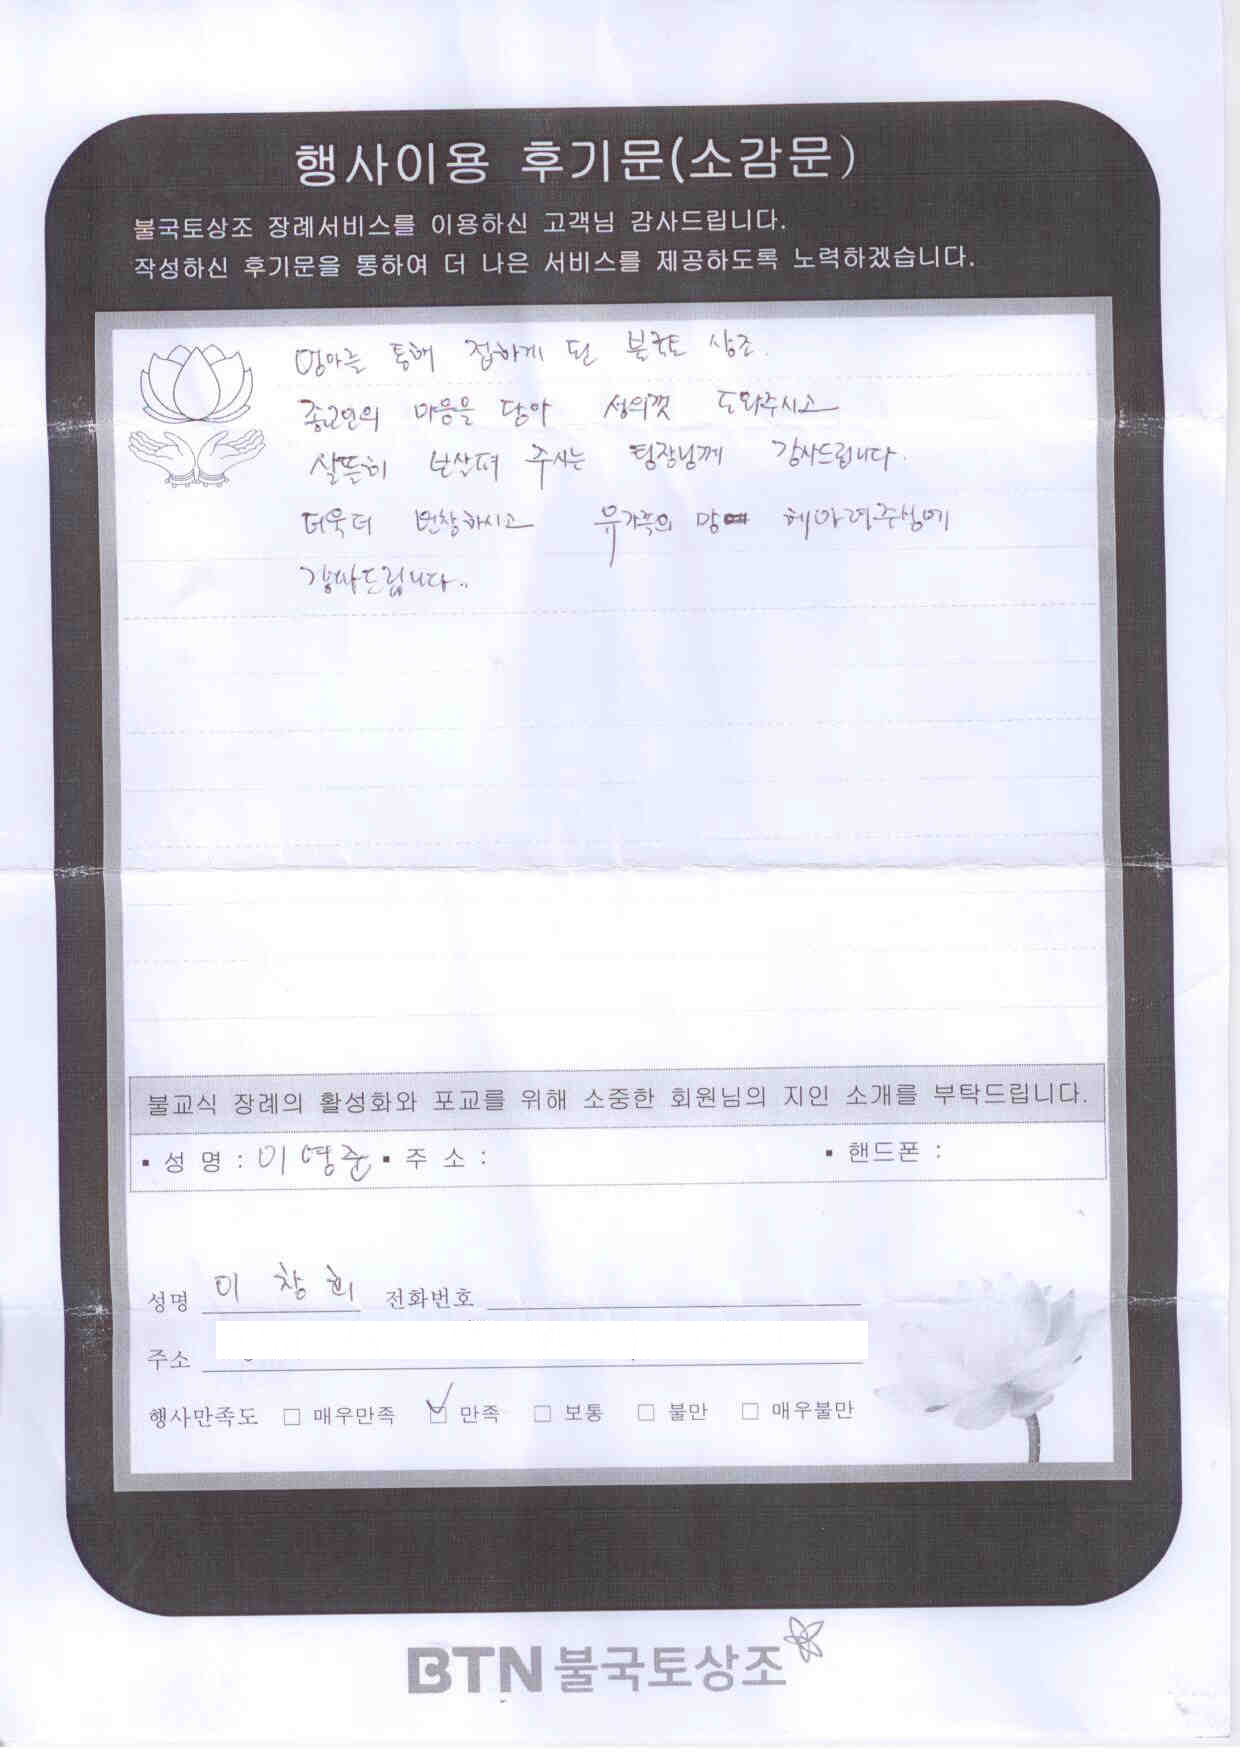 행사이용 후기문(소감문)
불국토상조 장례서비스를 이용하신 고객님 감사드립니다.
작성하신 후기문을 통하여 더 나은 서비스를 제공하도록 노력하겠습니다.
엄마를 통해 접하게 된 불국토 상조.
종교인의 마음을 담아 성의껏 도와주시고
살뜰히 보살펴 주시는 팀장님께 감사드립니다.
더욱더 번창하시고 유가족의 맘 헤아려주심에
감사드립니다..
불교식 장례의 활성화와 포교를 위해 소중한 회원님의 지인 소개를 부탁드립니다.
▪ 성 명 : 이영준 ▪ 주 소 : ▪ 핸드폰 :
성명 이 창 희 전화번호
주소
행사만족도 □ 매우만족 ☑ 만족 □ 보통 □ 불만 □ 매우불만
BTN불국토상조